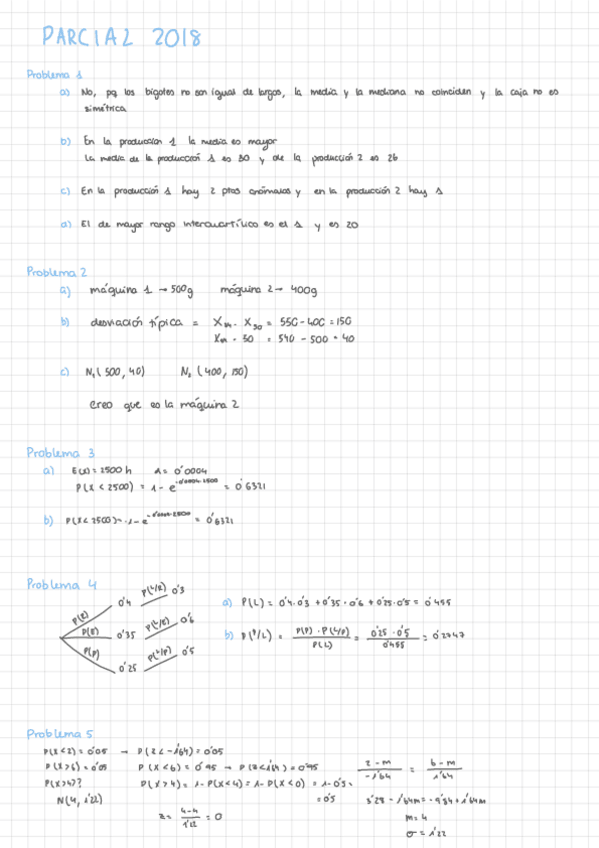 PARCIAL 2018
Problema 1
a) No, pq los bigotes no son igual de largos, la media y la mediana no coinciden y la caja no es
simétrica
b) En la produccion 1 la media es mayor
La media de la producción 1 es 30 y de la producción 2 es 26
c) En la producción 1 hay 2 ptos anómalos y en la producción 2 hay 1
d) El de mayor rango intercuartílico es el 1 y es 20
Problema 2
a) máquina 1 → 500g máquina 2 → 400g
b) desviación típica = X₈₄ - X₅₀ = 550 - 400 = 150
X₈₄ - 50 = 540 - 500 = 40
c) N₁(500, 40) N₂ (400, 150)
creo que es la máquina 2
Problema 3
a) E(x) = 2500 h λ = 0'0004
P(X < 2500) = 1 - e^-0'0004·2500 = 0'6321
b) P(X < 2500) = 1 - e^-0'0004·2500 = 0'6321
Problema 4
P(R) 0'4 P(L/R) 0'3
P(B) 0'35 P(L/B) 0'6
P(P) 0'25 P(L/P) 0'5
a) P(L) = 0'4·0'3 + 0'35·0'6 + 0'25·0'5 = 0'455
b) P(P/L) = P(P) · P(L/P) / P(L) = 0'25 · 0'5 / 0'455 = 0'2747
Problema 5
P(X<2) = 0'05 → P(Z < -1'64) = 0'05
P(X>6) = 0'05 P(X<6) = 0'95 → P(Z<1'64) = 0'95
P(X>4)? P(X>4) = 1 - P(X<4) = 1 - P(X<0) = 1 - 0'5 =
= 0'5
N(4, 1'22)
z = 4-4 / 1'22 = 0
2-m / -1'64 = 6-m / 1'64
3'28 - 1'64m = -9'84 + 1'64m
m = 4
σ = 1'22